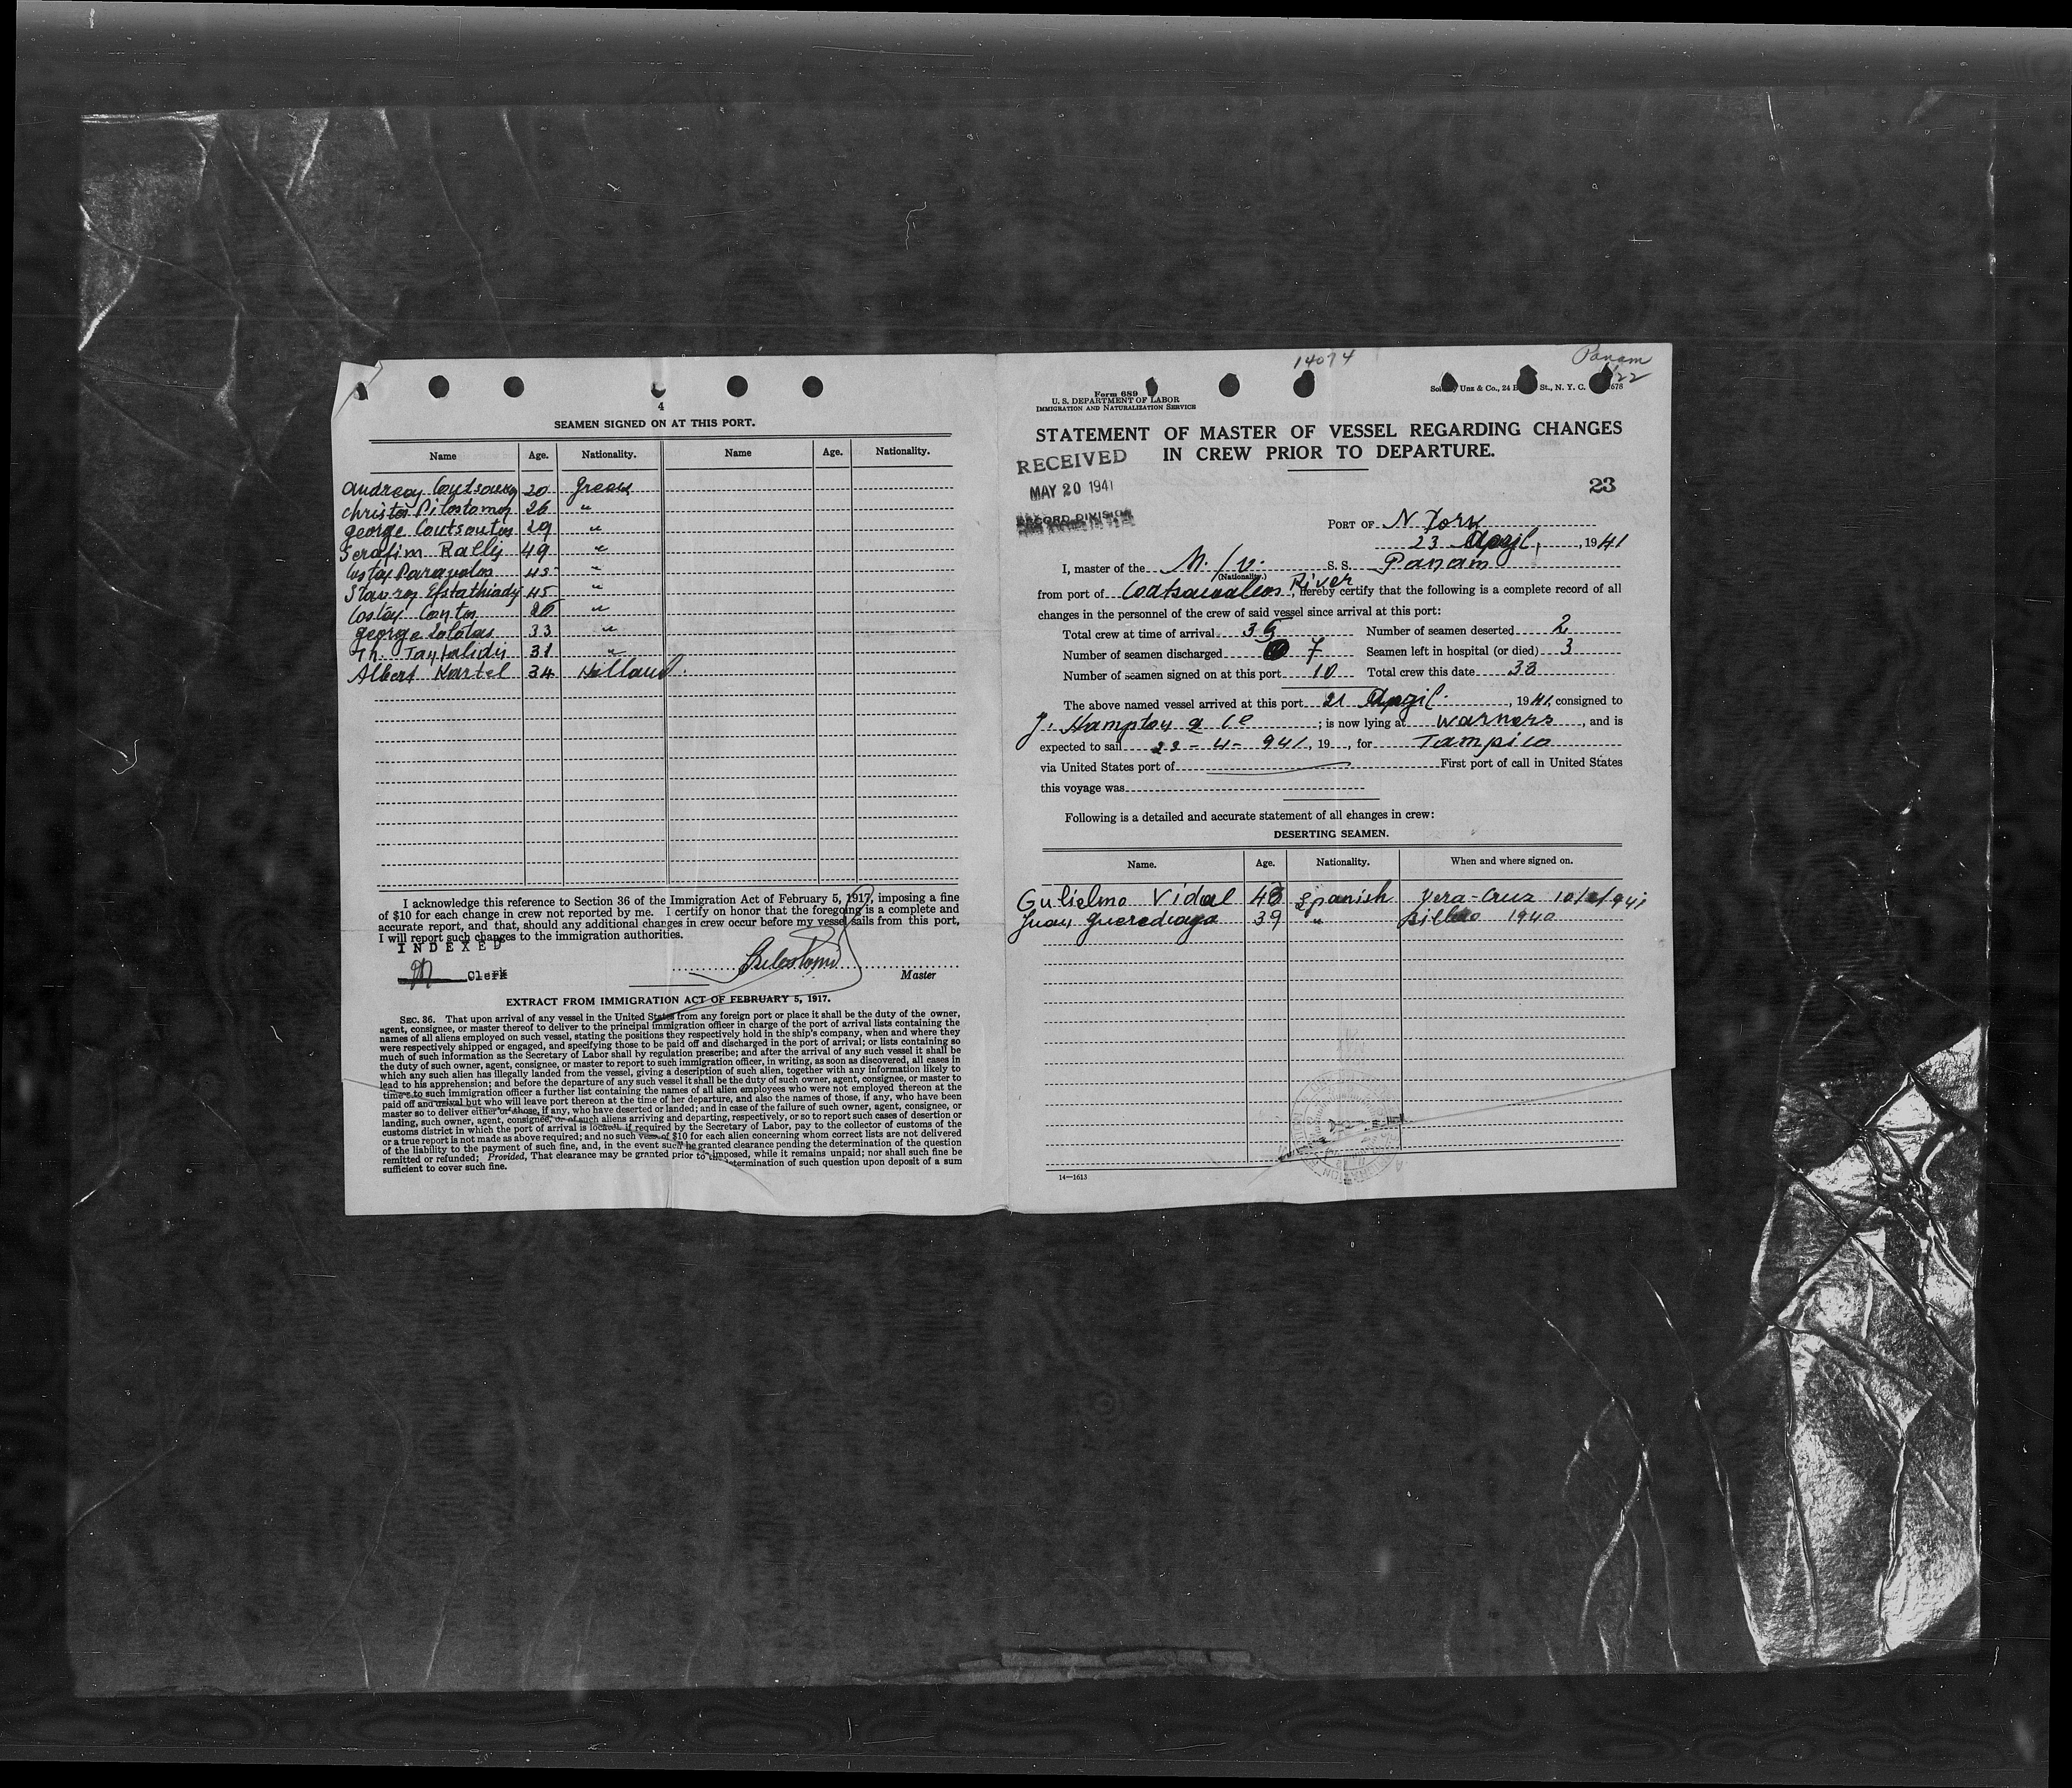 4
SEAMEN SIGNED ON AT THIS PORT.
Name Age. Nationality. Name Age. Nationality.
20 Greek
Christos 26 "
George Coutsoutos 29 "
Serafim Rallis 49 "
45 "
Stavros Efstathiady 45 "
Costas Contos 26 "
George 33 "
Th. 31 "
Albert Kartel 34 Holland.
I acknowledge this reference to Section 36 of the Immigration Act of February 5, 1917, imposing a fine
of $10 for each change in crew not reported by me. I certify on honor that the foregoing is a complete and
accurate report, and that, should any additional changes in crew occur before my vessel sails from this port,
I will report such changes to the immigration authorities.
INDEXED
Clerk
Master
EXTRACT FROM IMMIGRATION ACT OF FEBRUARY 5, 1917.
SEC. 36. That upon arrival of any vessel in the United States from any foreign port or place it shall be the duty of the owner,
agent, consignee, or master thereof to deliver to the principal immigration officer in charge of the port of arrival lists containing the
names of all aliens employed on such vessel, stating the positions they respectively hold in the ship's company, when and where they
were respectively shipped or engaged, and specifying those to be paid off and discharged in the port of arrival; or lists containing so
much of such information as the Secretary of Labor shall by regulation prescribe; and after the arrival of any such vessel it shall be
the duty of such owner, agent, consignee, or master to report to such immigration officer, in writing, as soon as discovered, all cases in
which any such alien has illegally landed from the vessel, giving a description of such alien, together with any information likely to
lead to his apprehension; and before the departure of any such vessel it shall be the duty of such owner, agent, consignee, or master to
to such immigration officer a further list containing the names of all alien employees who were not employed thereon at the
paid off and but who will leave port thereon at the time of her departure, and also the names of those, if any, who have been
master so to deliver either of those, if any, who have deserted or landed; and in case of the failure of such owner, agent, consignee, or
landing, such owner, agent, consignee, or of such aliens arriving and departing, respectively, or so to report such cases of desertion or
customs district in which the port of arrival is if required by the Secretary of Labor, pay to the collector of customs of the
or a true report is not made as above required; and no such of $10 for each alien concerning whom correct lists are not delivered
of the liability to the payment of such fine, and, in the event such be granted clearance pending the determination of the question
remitted or refunded; Provided, That clearance may be granted prior to imposed, while it remains unpaid; nor shall such fine be
sufficient to cover such fine. determination of such question upon deposit of a sum
14074
Panam
Form 689
U. S. DEPARTMENT OF LABOR
IMMIGRATION AND NATURALIZATION SERVICE
Unz & Co., 24 St., N. Y. C. 678
STATEMENT OF MASTER OF VESSEL REGARDING CHANGES
IN CREW PRIOR TO DEPARTURE.
RECEIVED
MAY 20 1941
RECORD DIVISION
23
PORT OF N. York
23 April, , 1941
I, master of the M/V. S. S. Panam
(Nationality.)
from port of River , hereby certify that the following is a complete record of all
changes in the personnel of the crew of said vessel since arrival at this port:
Total crew at time of arrival Number of seamen deserted 2
Number of seamen discharged 7 Seamen left in hospital (or died) 3
Number of seamen signed on at this port 10 Total crew this date 33
The above named vessel arrived at this port 21 April , 1941, consigned to
J. Hampton & Co ; is now lying at Warners , and is
expected to sail 22-4-941, 19 , for Tampico
via United States port of First port of call in United States
this voyage was
Following is a detailed and accurate statement of all changes in crew:
DESERTING SEAMEN.
Name. Age. Nationality. When and where signed on.
Gulielmo Vidal 43 Spanish Vera-Cruz
Juan 39 " Bilbao 1940
14—1613